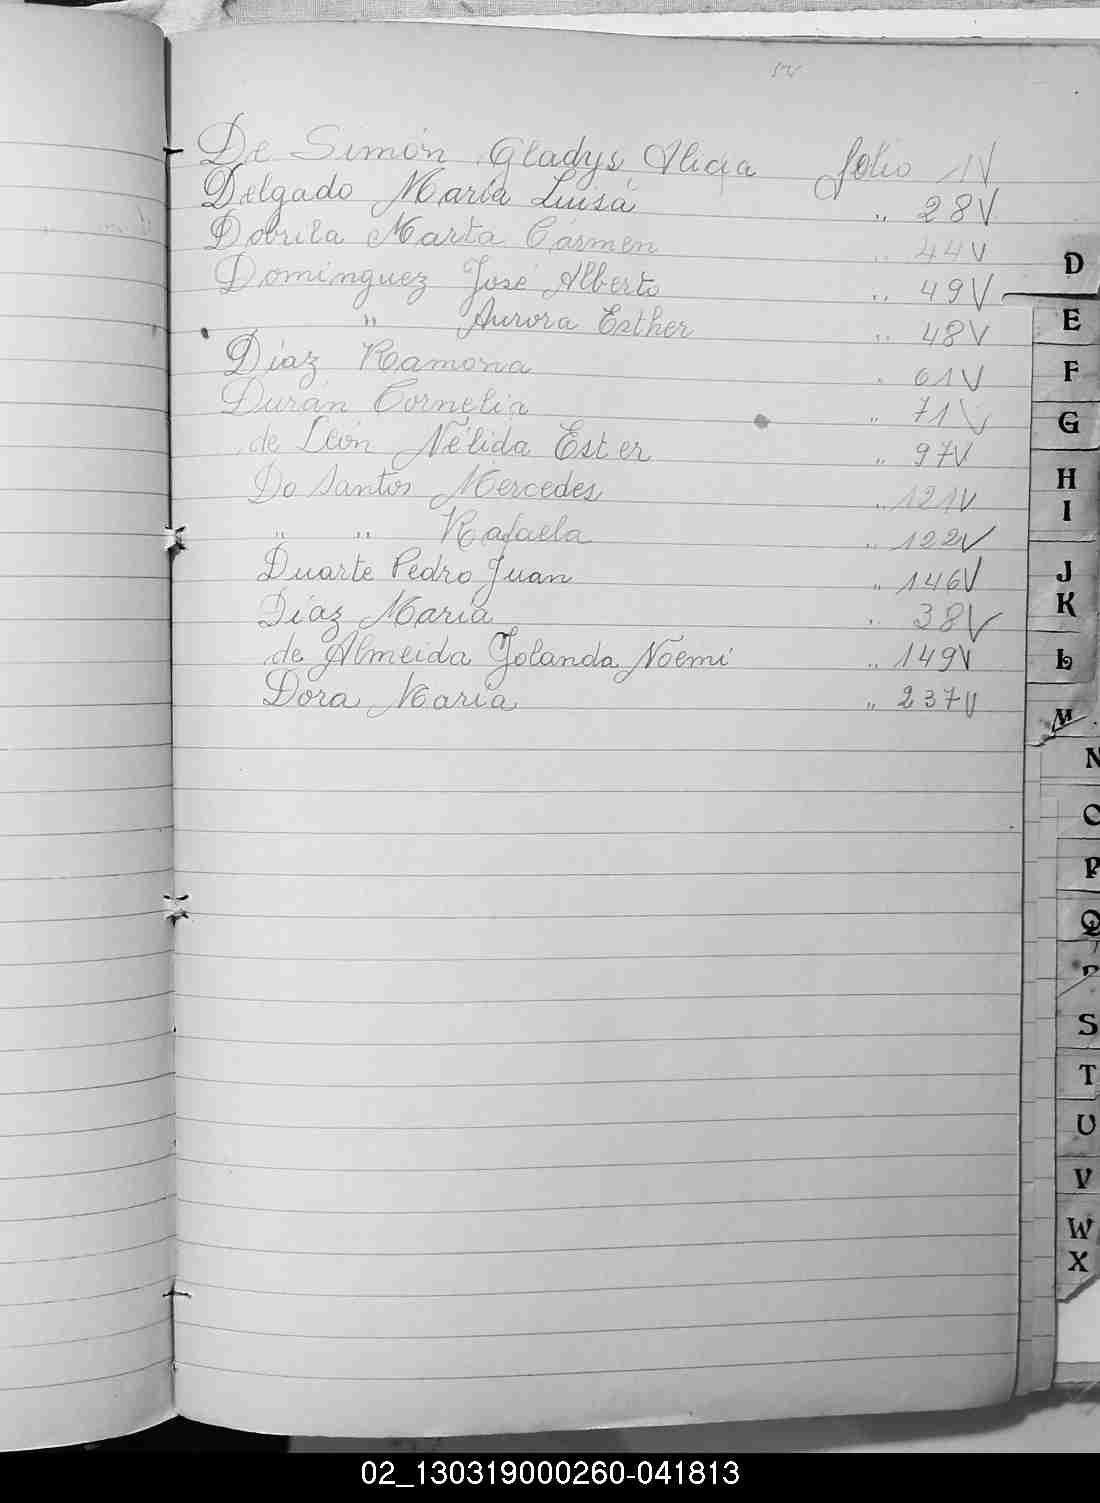 De Simón Gladys Alicia folio 1V
Delgado María Luisa " 28V
Dobrila Marta Carmen " 44V
Dominguez José Alberto " 49V
" Aurora Esther " 48V
Díaz Ramona " 61V
Durán Cornelia " 71V
de León Nélida Ester " 97V
Do Santos Mercedes " 121V
" " Rafaela " 122V
Duarte Pedro Juan " 146V
Díaz María " 38V
de Almeida Yolanda Noemí " 149V
Dora María " 237V
D
E
F
G
H
I
J
K
L
M
N
O
P
Q
R
S
T
U
V
W
X
02_130319000260-041813